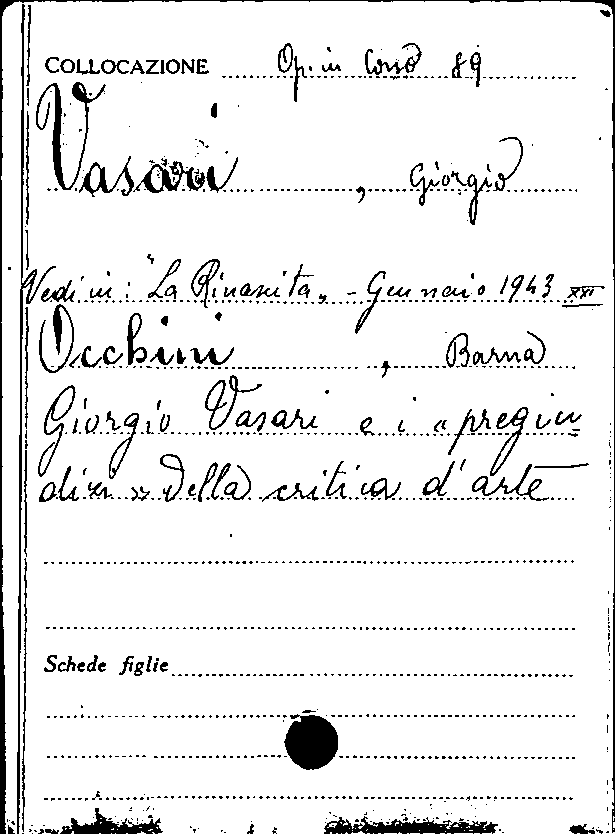 COLLOCAZIONE Op. in Corso 89
Vasari, Giorgio
Vedi in: "La Rinascita" - Gennaio 1943 XXI
Occhini, Barna
Giorgio Vasari e i « pregiu=
dizi » della critica d'arte
Schede figlie